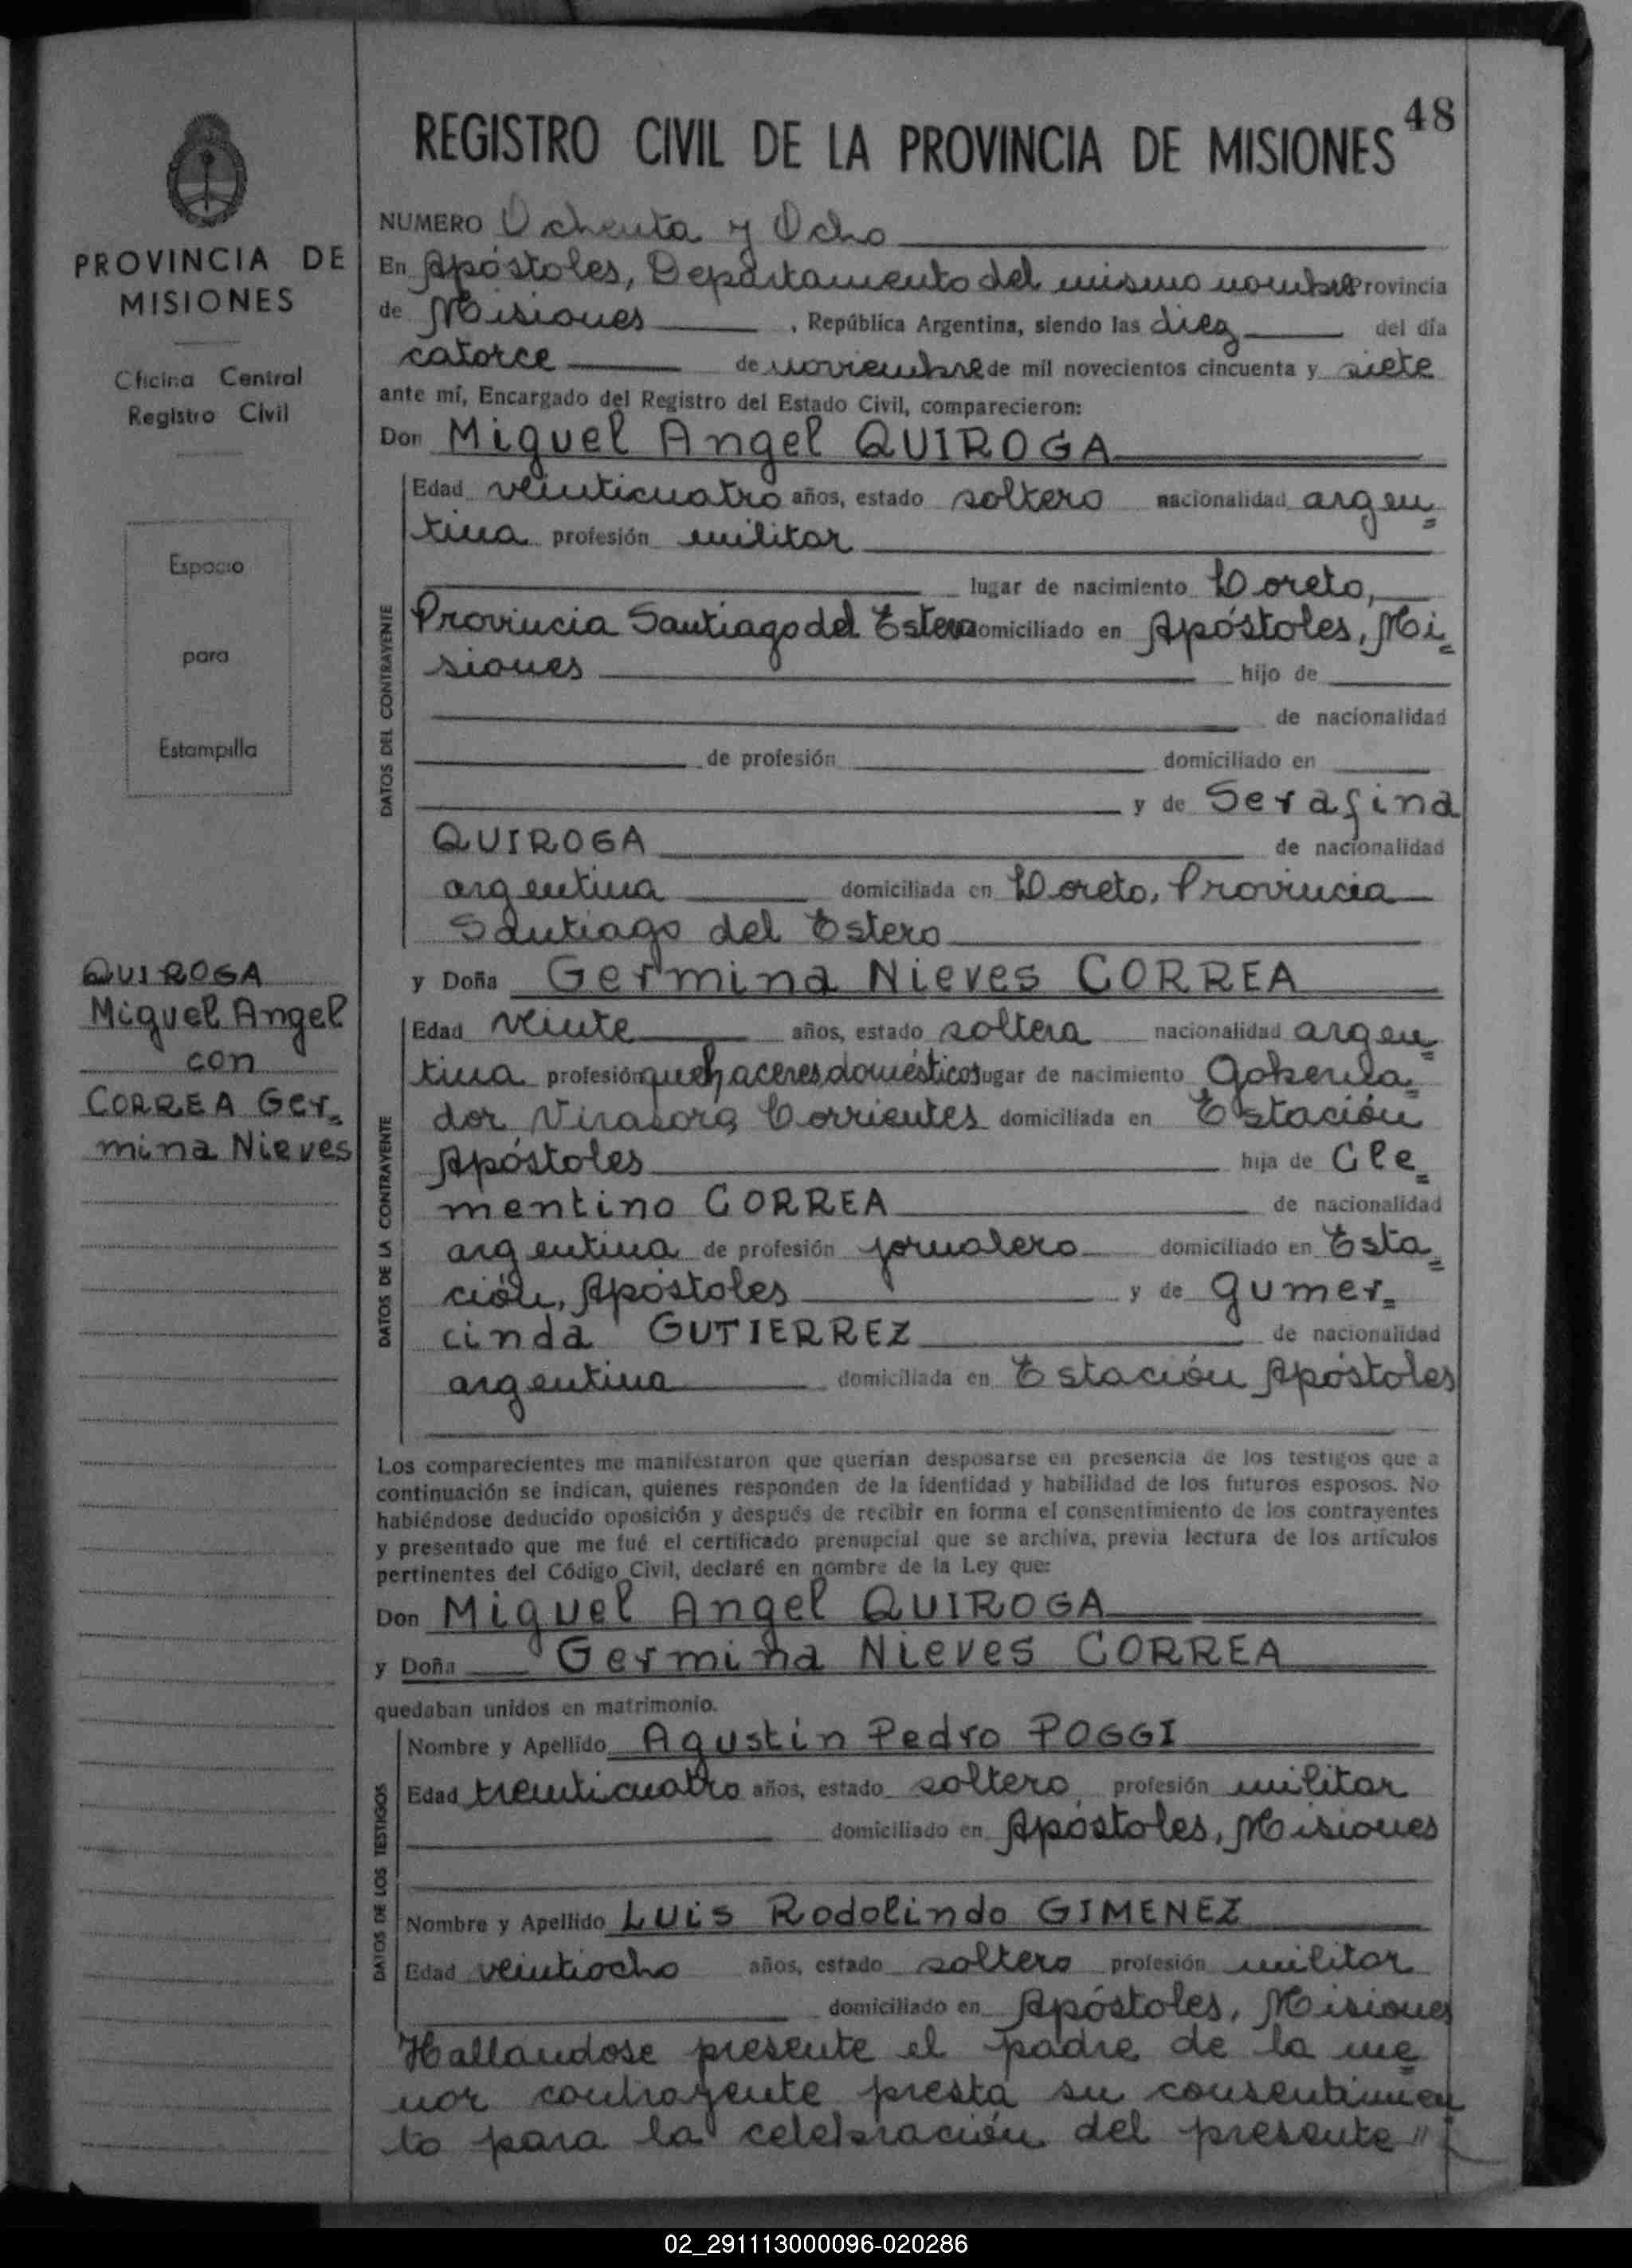 48
REGISTRO CIVIL DE LA PROVINCIA DE MISIONES
PROVINCIA DE
MISIONES
Oficina Central
Registro Civil
Espacio
para
Estampilla
QUIROGA
Miguel Angel
con
CORREA Ger=
mina Nieves
NUMERO Ochenta y Ocho
En Apóstoles, Departamento del mismo nombre Provincia
de Misiones , República Argentina, siendo las diez del día
catorce de noviembre de mil novecientos cincuenta y siete
ante mí, Encargado del Registro del Estado Civil, comparecieron:
Don Miguel Angel QUIROGA
DATOS DEL CONTRAYENTE
Edad veinticuatro años, estado soltero nacionalidad argen=
tina profesión militar
lugar de nacimiento Loreto,
Provincia Santiago del Estero domiciliado en Apóstoles, Mi=
siones hijo de
de nacionalidad
de profesión domiciliado en
y de Serafina
QUIROGA de nacionalidad
argentina domiciliada en Loreto, Provincia
Santiago del Estero
y Doña Germina Nieves CORREA
DATOS DE LA CONTRAYENTE
Edad veinte años, estado soltera nacionalidad argen=
tina profesión quehaceres domésticos lugar de nacimiento Goberna=
dor Virasoro, Corrientes domiciliada en Estación
Apóstoles hija de Cle=
mentino CORREA de nacionalidad
argentina de profesión jornalero domiciliado en Esta=
ción, Apóstoles y de Gumer=
cinda GUTIERREZ de nacionalidad
argentina domiciliada en Estación Apóstoles
Los comparecientes me manifestaron que querían desposarse en presencia de los testigos que a
continuación se indican, quienes responden de la identidad y habilidad de los futuros esposos. No
habiéndose deducido oposición y después de recibir en forma el consentimiento de los contrayentes
y presentado que me fué el certificado prenupcial que se archiva, previa lectura de los artículos
pertinentes del Código Civil, declaré en nombre de la Ley que:
Don Miguel Angel QUIROGA
y Doña Germina Nieves CORREA
quedaban unidos en matrimonio.
DATOS DE LOS TESTIGOS
Nombre y Apellido Agustin Pedro POGGI
Edad treinticuatro años, estado soltero profesión militar
domiciliado en Apóstoles, Misiones
Nombre y Apellido Luis Rodolindo GIMENEZ
Edad veintiocho años, estado soltero profesión militar
domiciliado en Apóstoles, Misiones
Hallandose presente el padre de la me=
nor contrayente presta su consentimien
to para la celebración del presente //
02_291113000096-020286